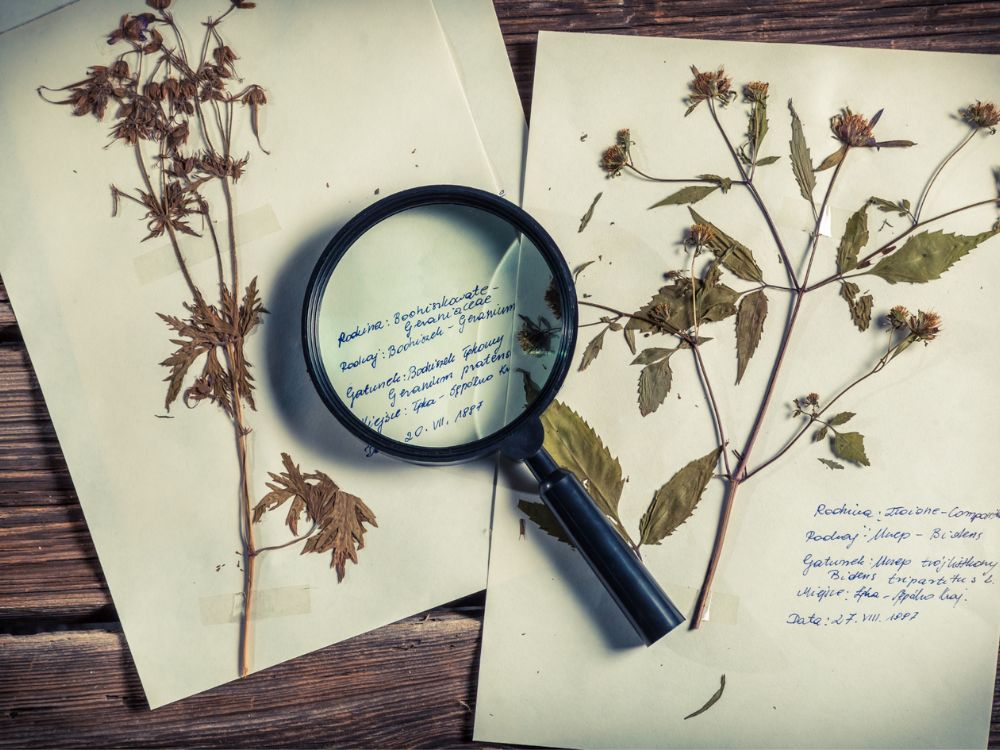 Rodzina: Bodziszkowate -
Geraniaceae
Rodzaj: Bodziszek - Geranium
Gatunek: Bodziszek łąkowy
Geranium pratense
Miejsce: Łąka -
20. VII. 1987
Rodzina: Złożone - Composi
Rodzaj: Uczep - Bidens
Gatunek: Uczep trójlistkowy
Bidens tripartitus L.
Miejsce: Łąka -
Data: 27. VIII. 1987